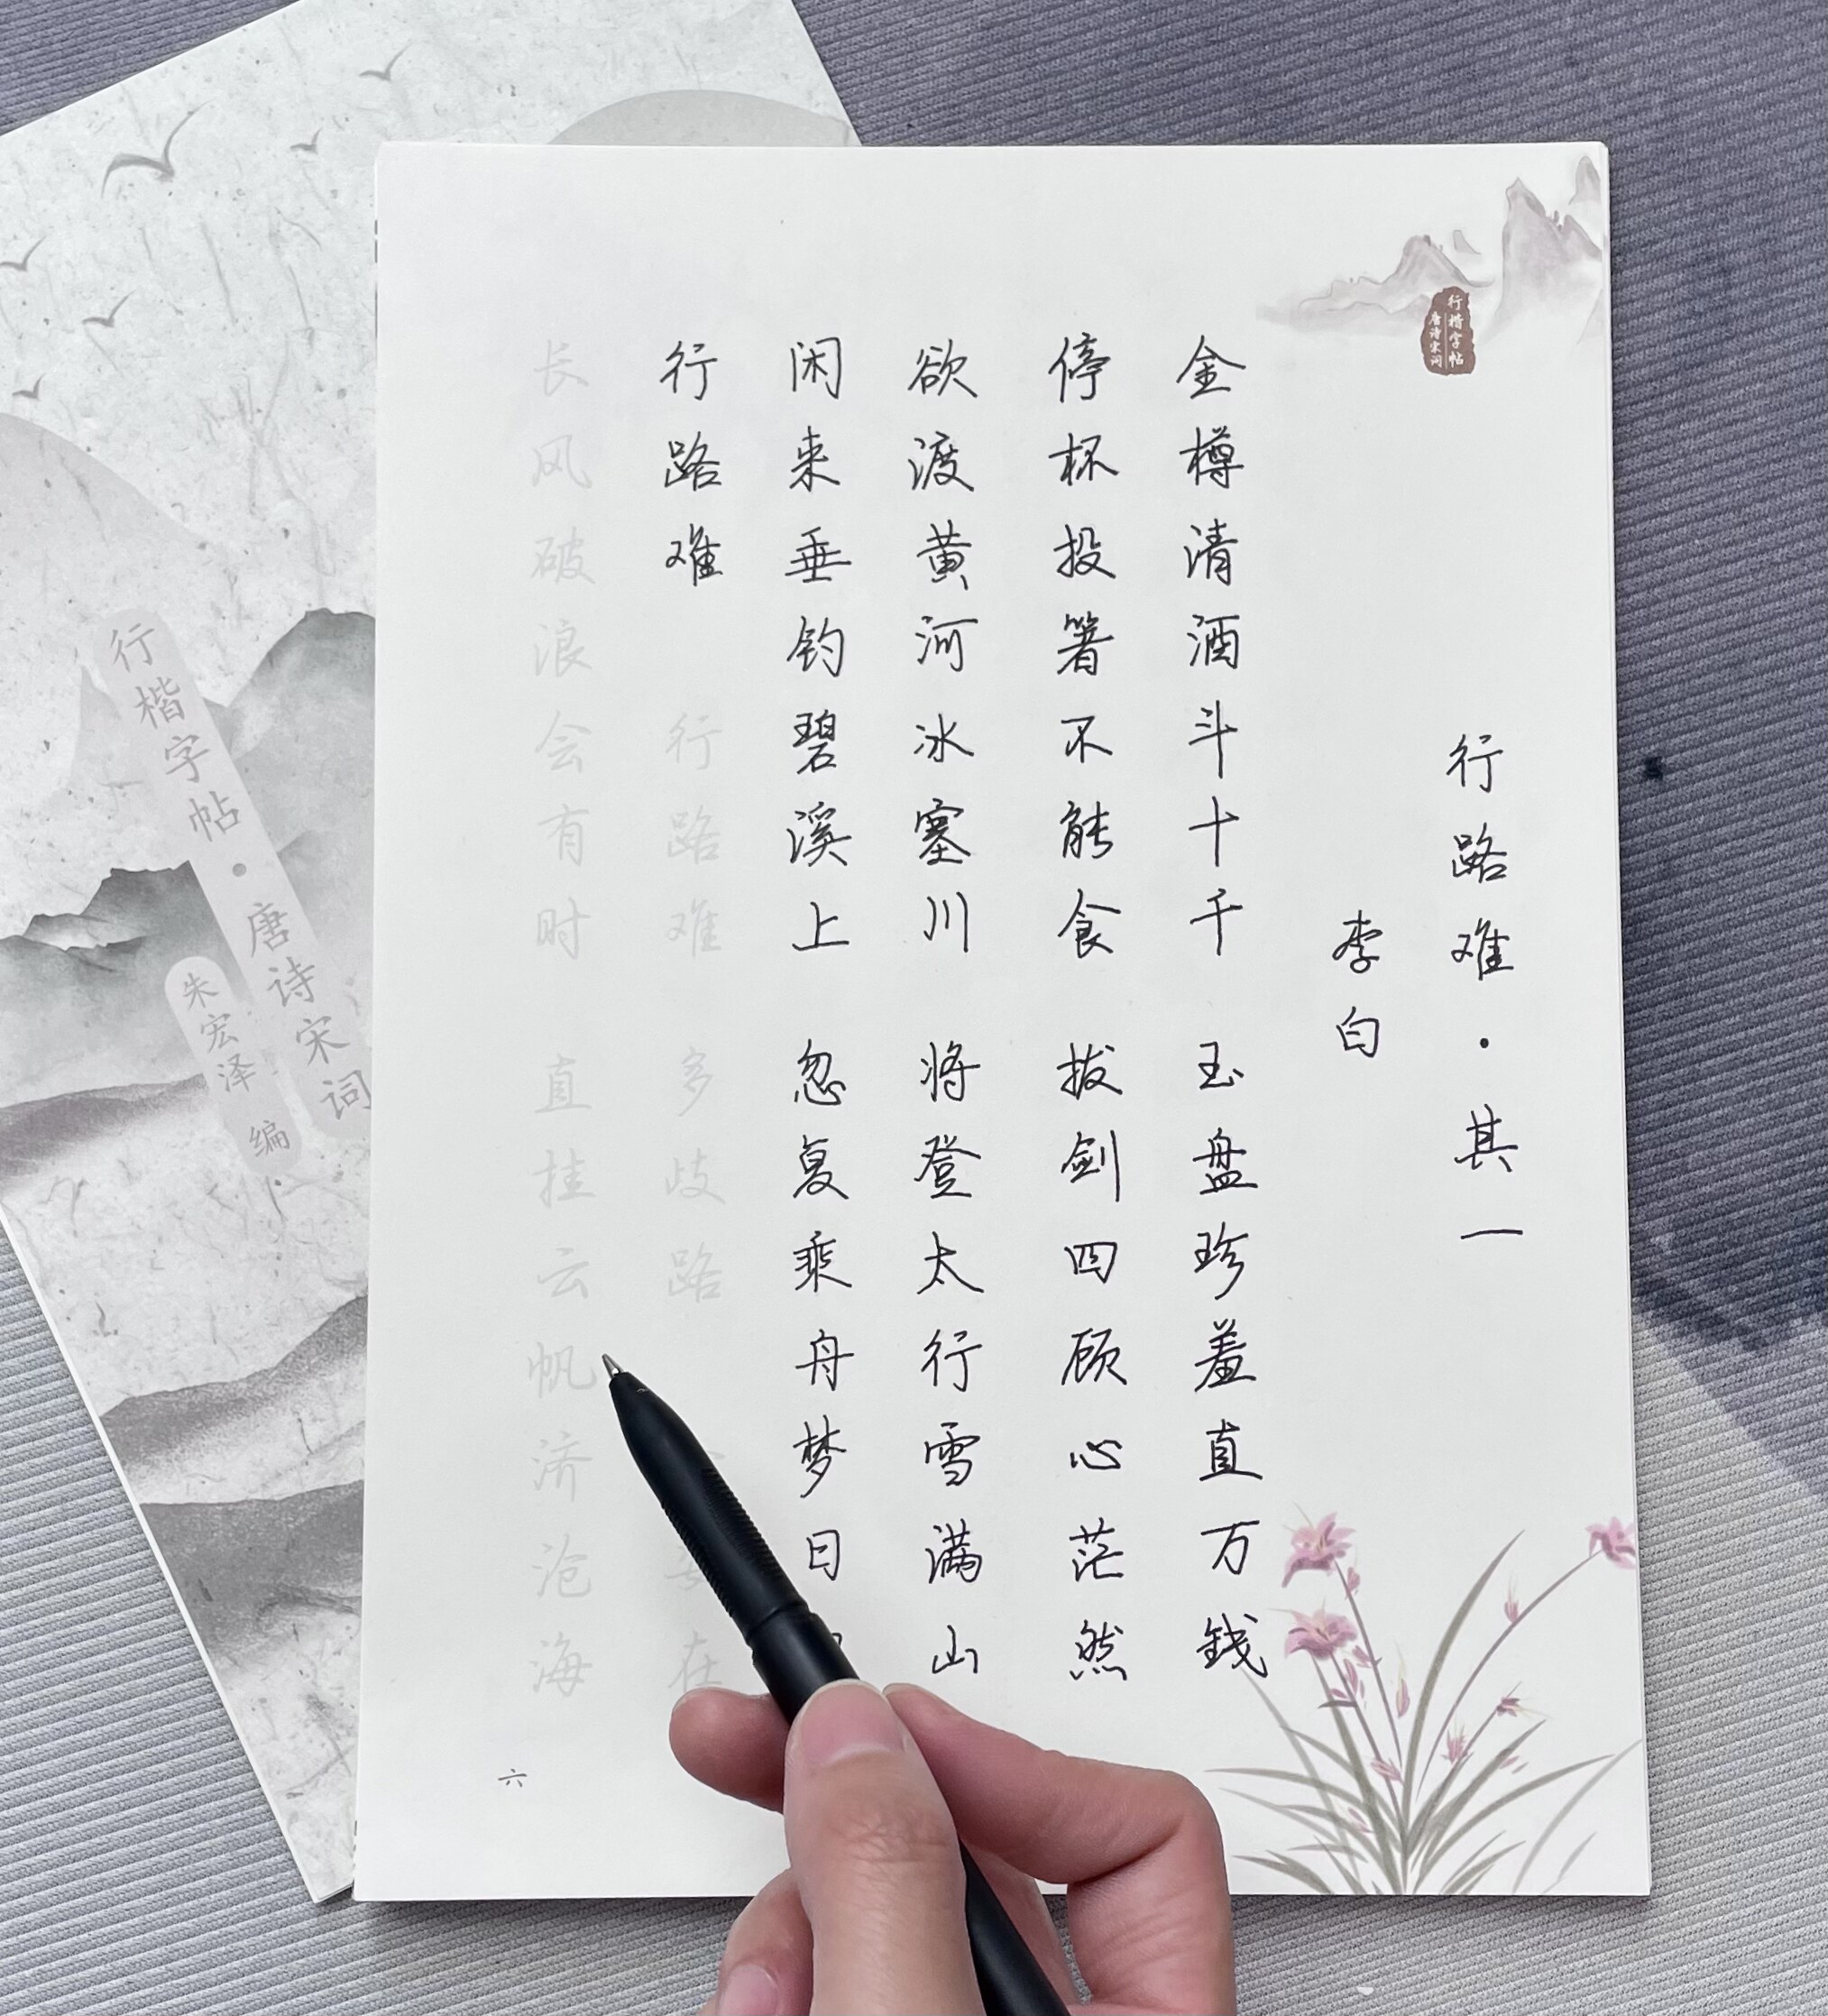 行楷字帖
唐诗宋词
行路难·其一
李白
金樽清酒斗十千 玉盘珍羞直万钱
停杯投箸不能食 拔剑四顾心茫然
欲渡黄河冰塞川 将登太行雪满山
闲来垂钓碧溪上 忽复乘舟梦日
行路难 行路难 多歧路 在
长风破浪会有时 直挂云帆济沧海
六
行楷字帖·唐诗宋词
朱宏泽 编